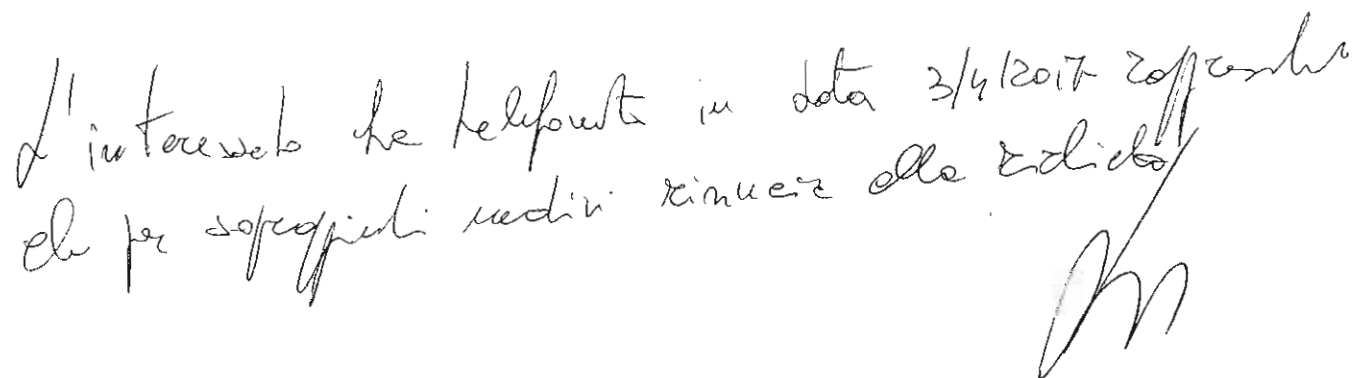 L'interessato ha telefonato in data 3/4/2017
che per sopraggiunti motivi rinuncia alla richiesta